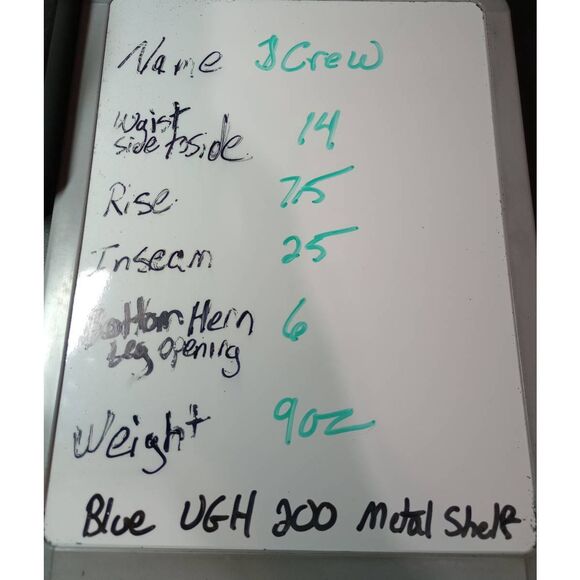 Name J Crew
Waist
side to side 14
Rise 7.5
Inseam 25
Bottom Hem 6
Leg opening
Weight 9oz
Blue UGH 200 Metal Shelf